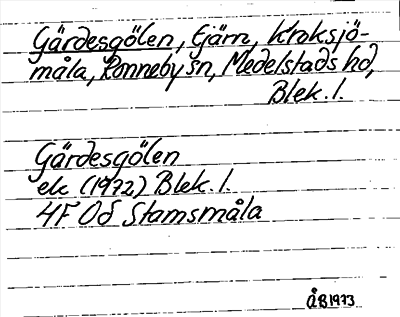 Gärdesgölen, tjärn, Kroksjö-
måla, Ronneby sn, Medelstads hd,
Blek. l.
Gärdesgölen
ek (1972) Blek. l.
4F 0d Stamsmåla
ÅB1973